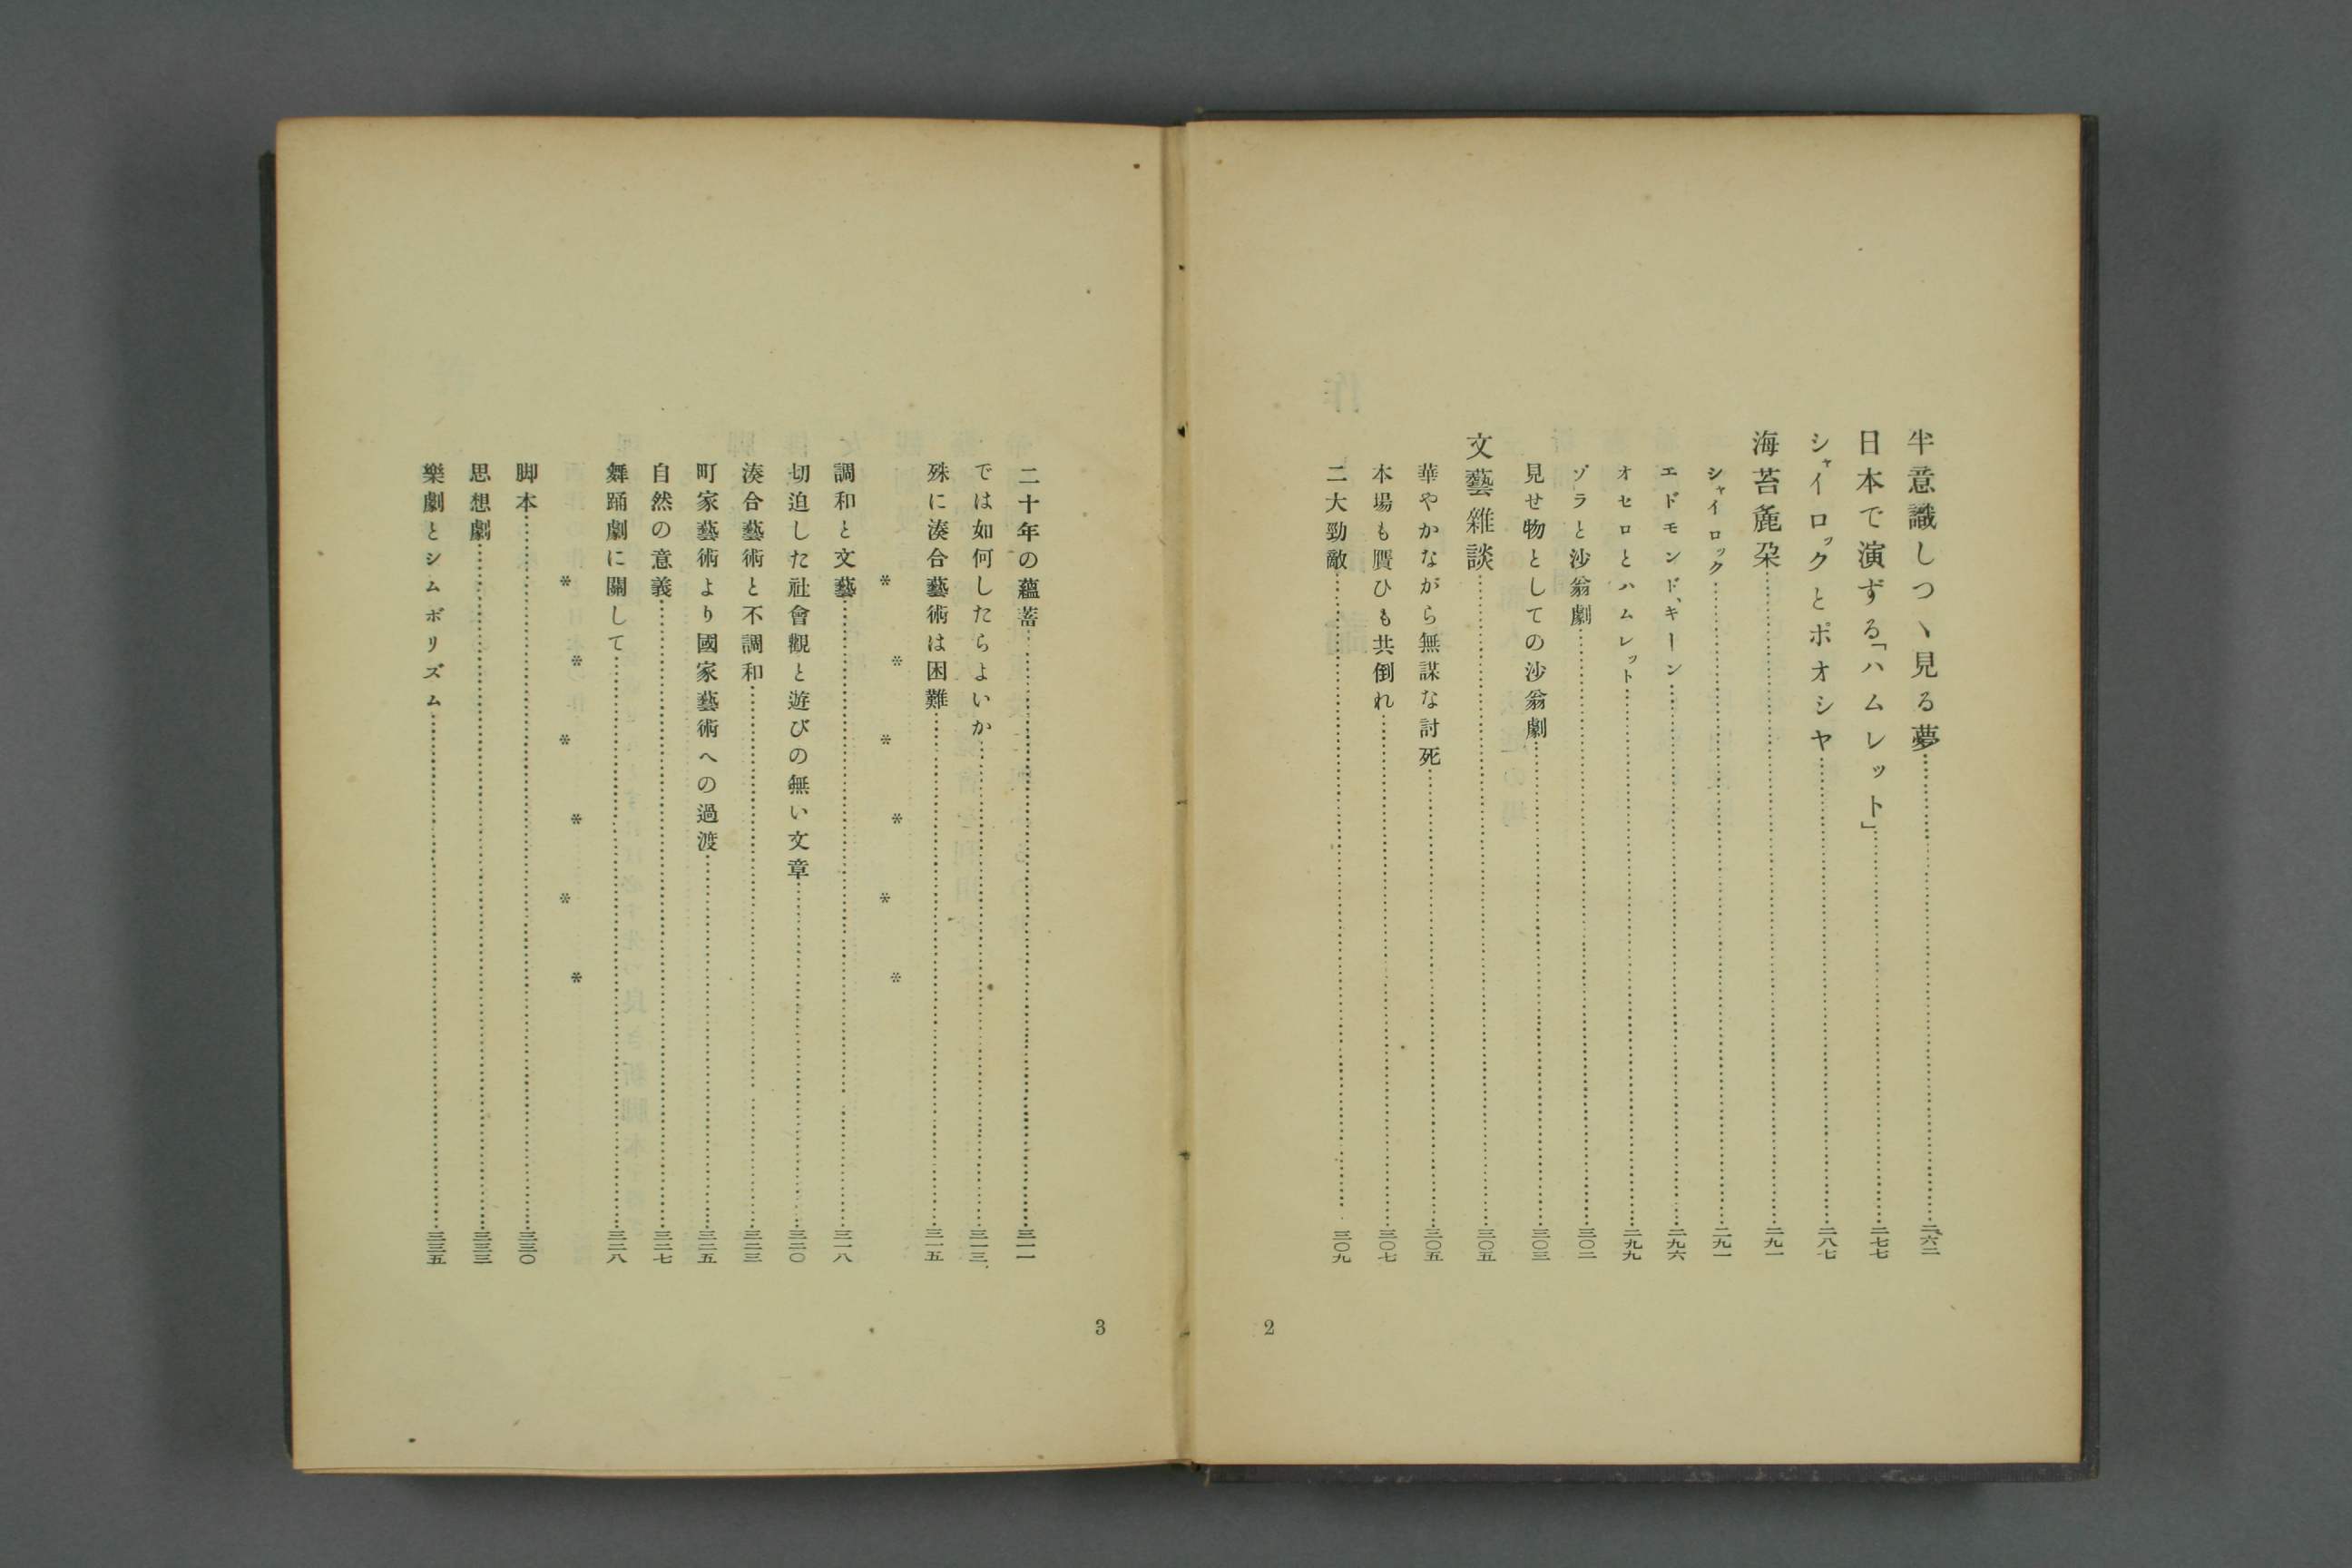 半意識しつヽ見る夢……二六二
日本で演ずる「ハムレット」……二七七
シャイロックとポオシヤ……二八七
海苔麁朶……二九一
シャイロック……二九一
エドモンド、キーン……二九六
オセロとハムレット……二九九
ゾラと沙翁劇……三〇二
見せ物としての沙翁劇……三〇三
文藝雜談……三〇五
華やかながら無謀な討死……三〇五
本場も贋ひも共倒れ……三〇七
二大勁敵……三〇九
2
二十年の蘊蓄……三一一
では如何したらよいか……三一三
殊に湊合藝術は困難……三一五
* * * * * *
調和と文藝……三一八
切迫した社會觀と遊びの無い文章……三二〇
湊合藝術と不調和……三二三
町家藝術より國家藝術への過渡……三二五
自然の意義……三二七
舞踊劇に關して……三二八
* * * * * *
脚本……三三〇
思想劇……三三三
樂劇とシムボリズム……三三五
3